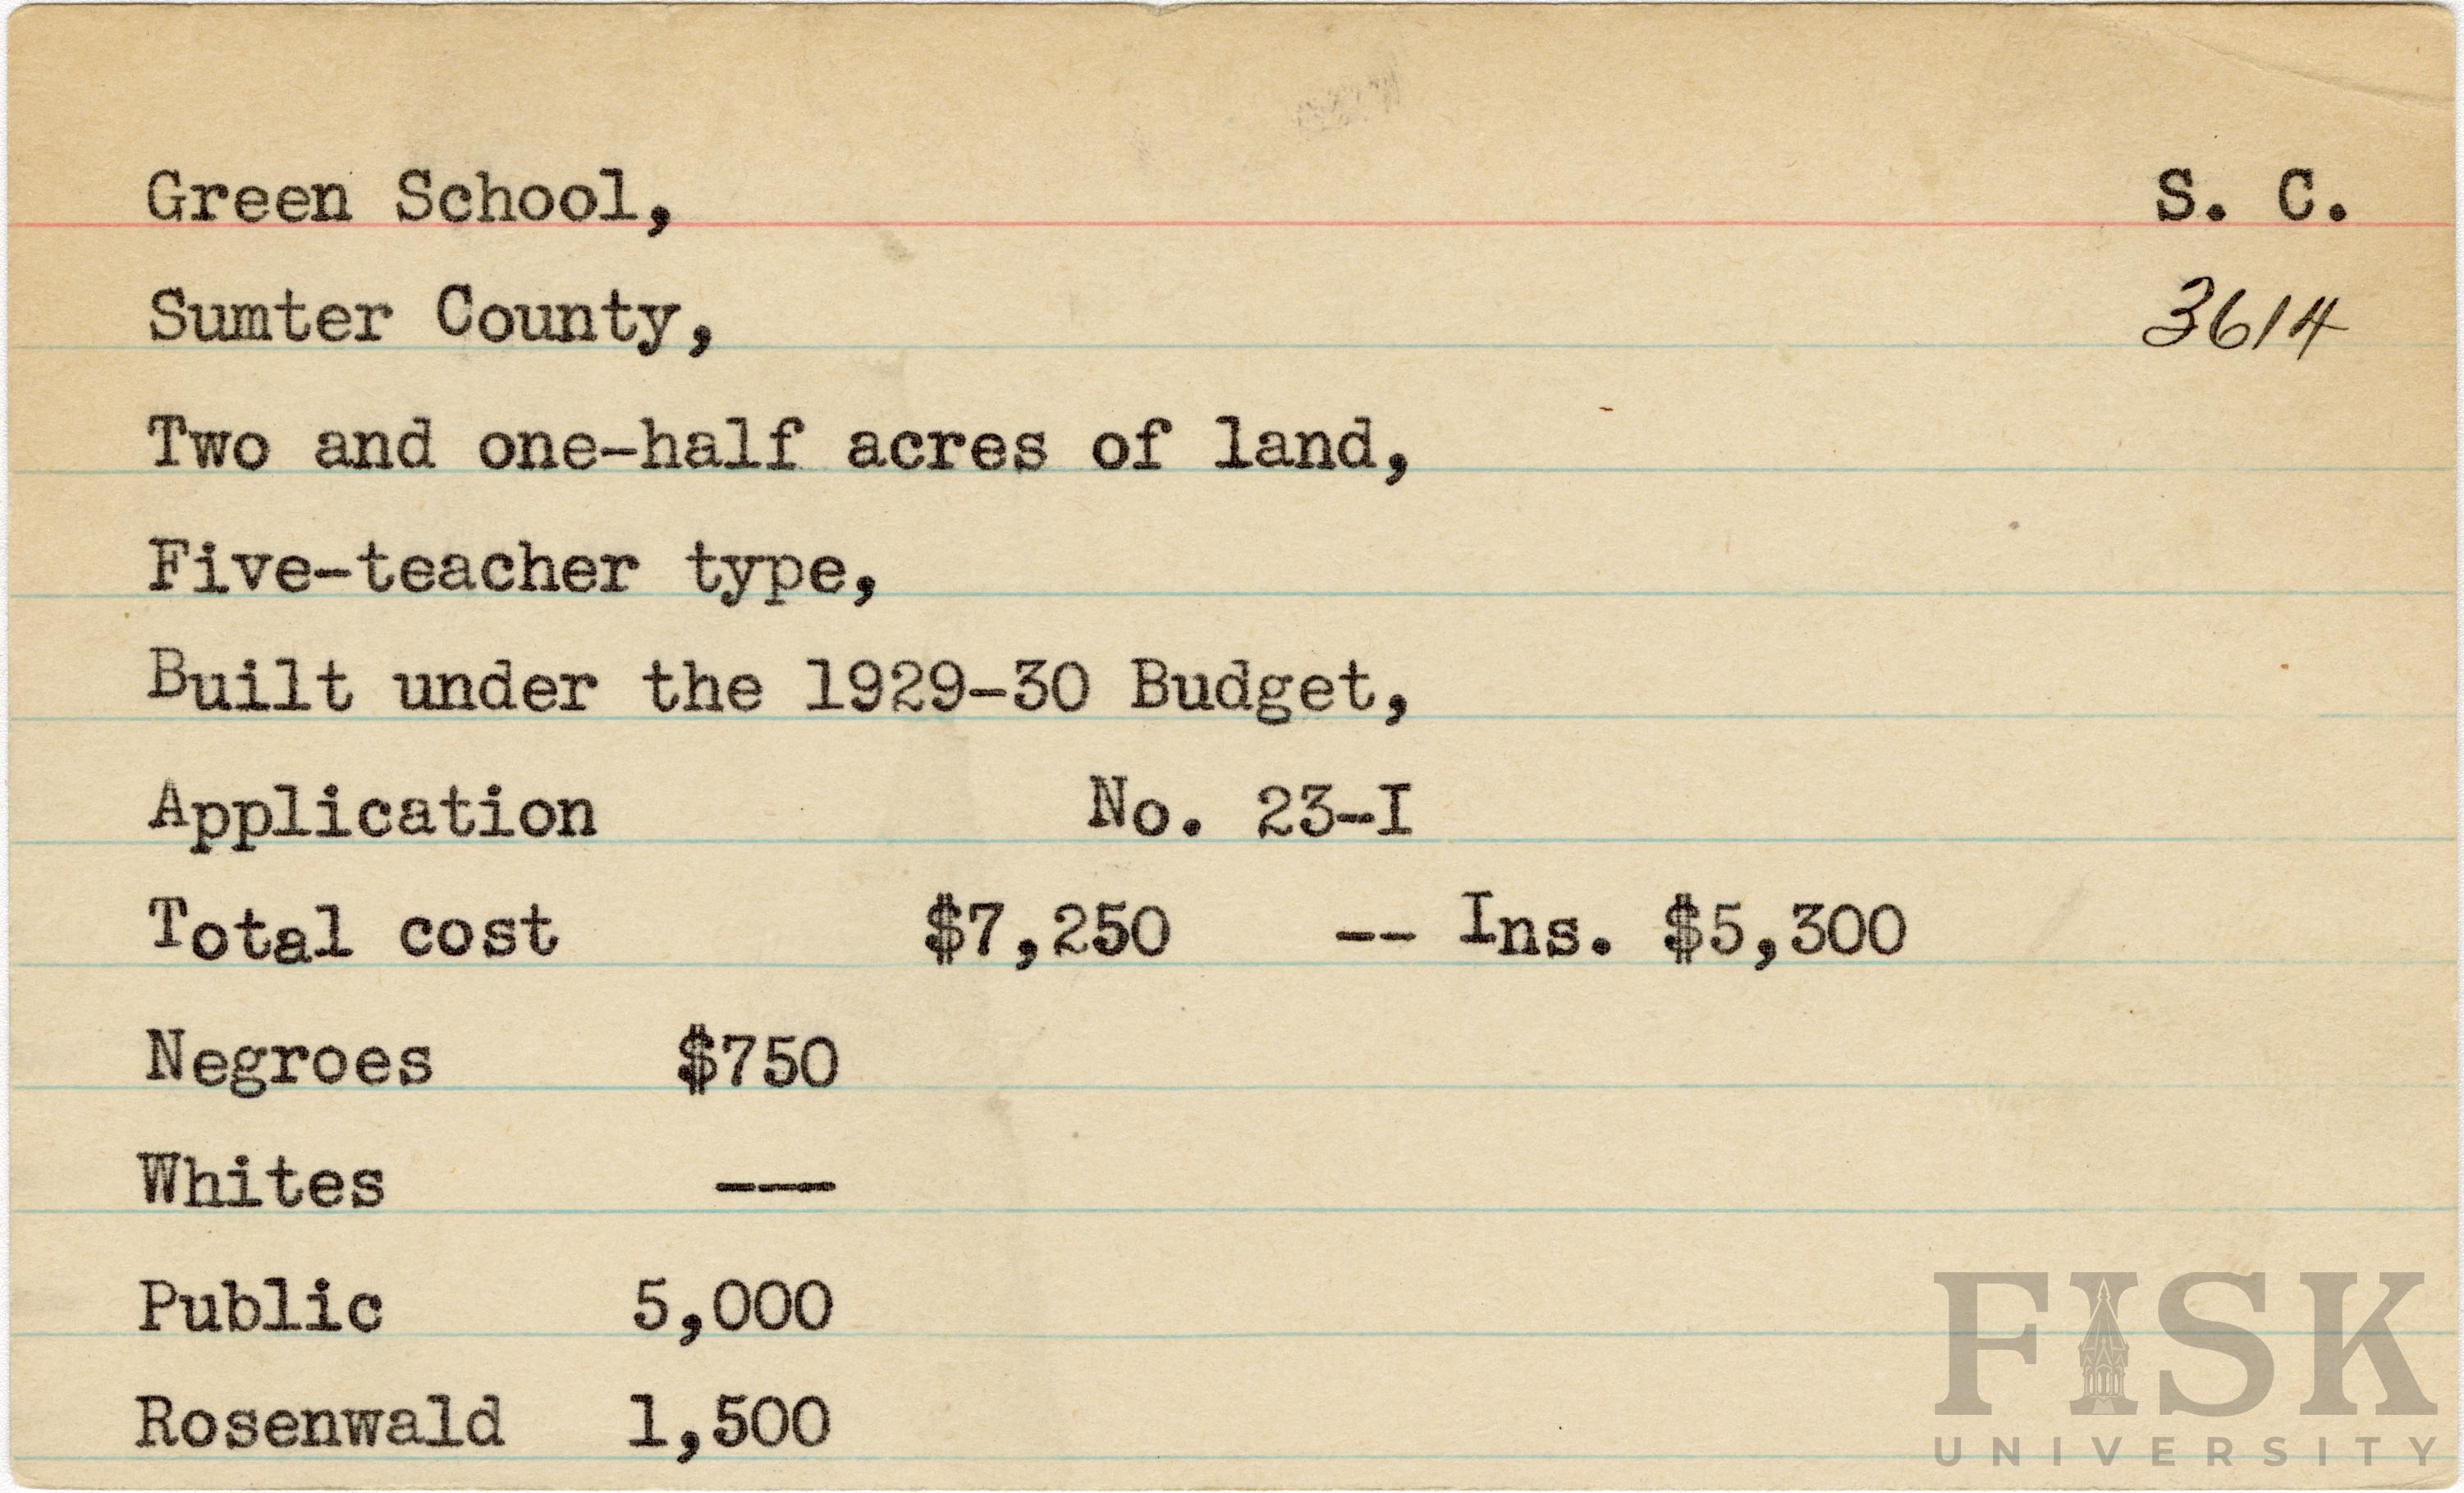 Green School, S. C.
Sumter County, 3614
Two and one-half acres of land,
Five-teacher type,
Built under the 1929-30 Budget,
Application No. 23-I
Total cost $7,250 -- Ins. $5,300
Negroes $750
Whites ---
Public 5,000
Rosenwald 1,500
FISK
UNIVERSITY